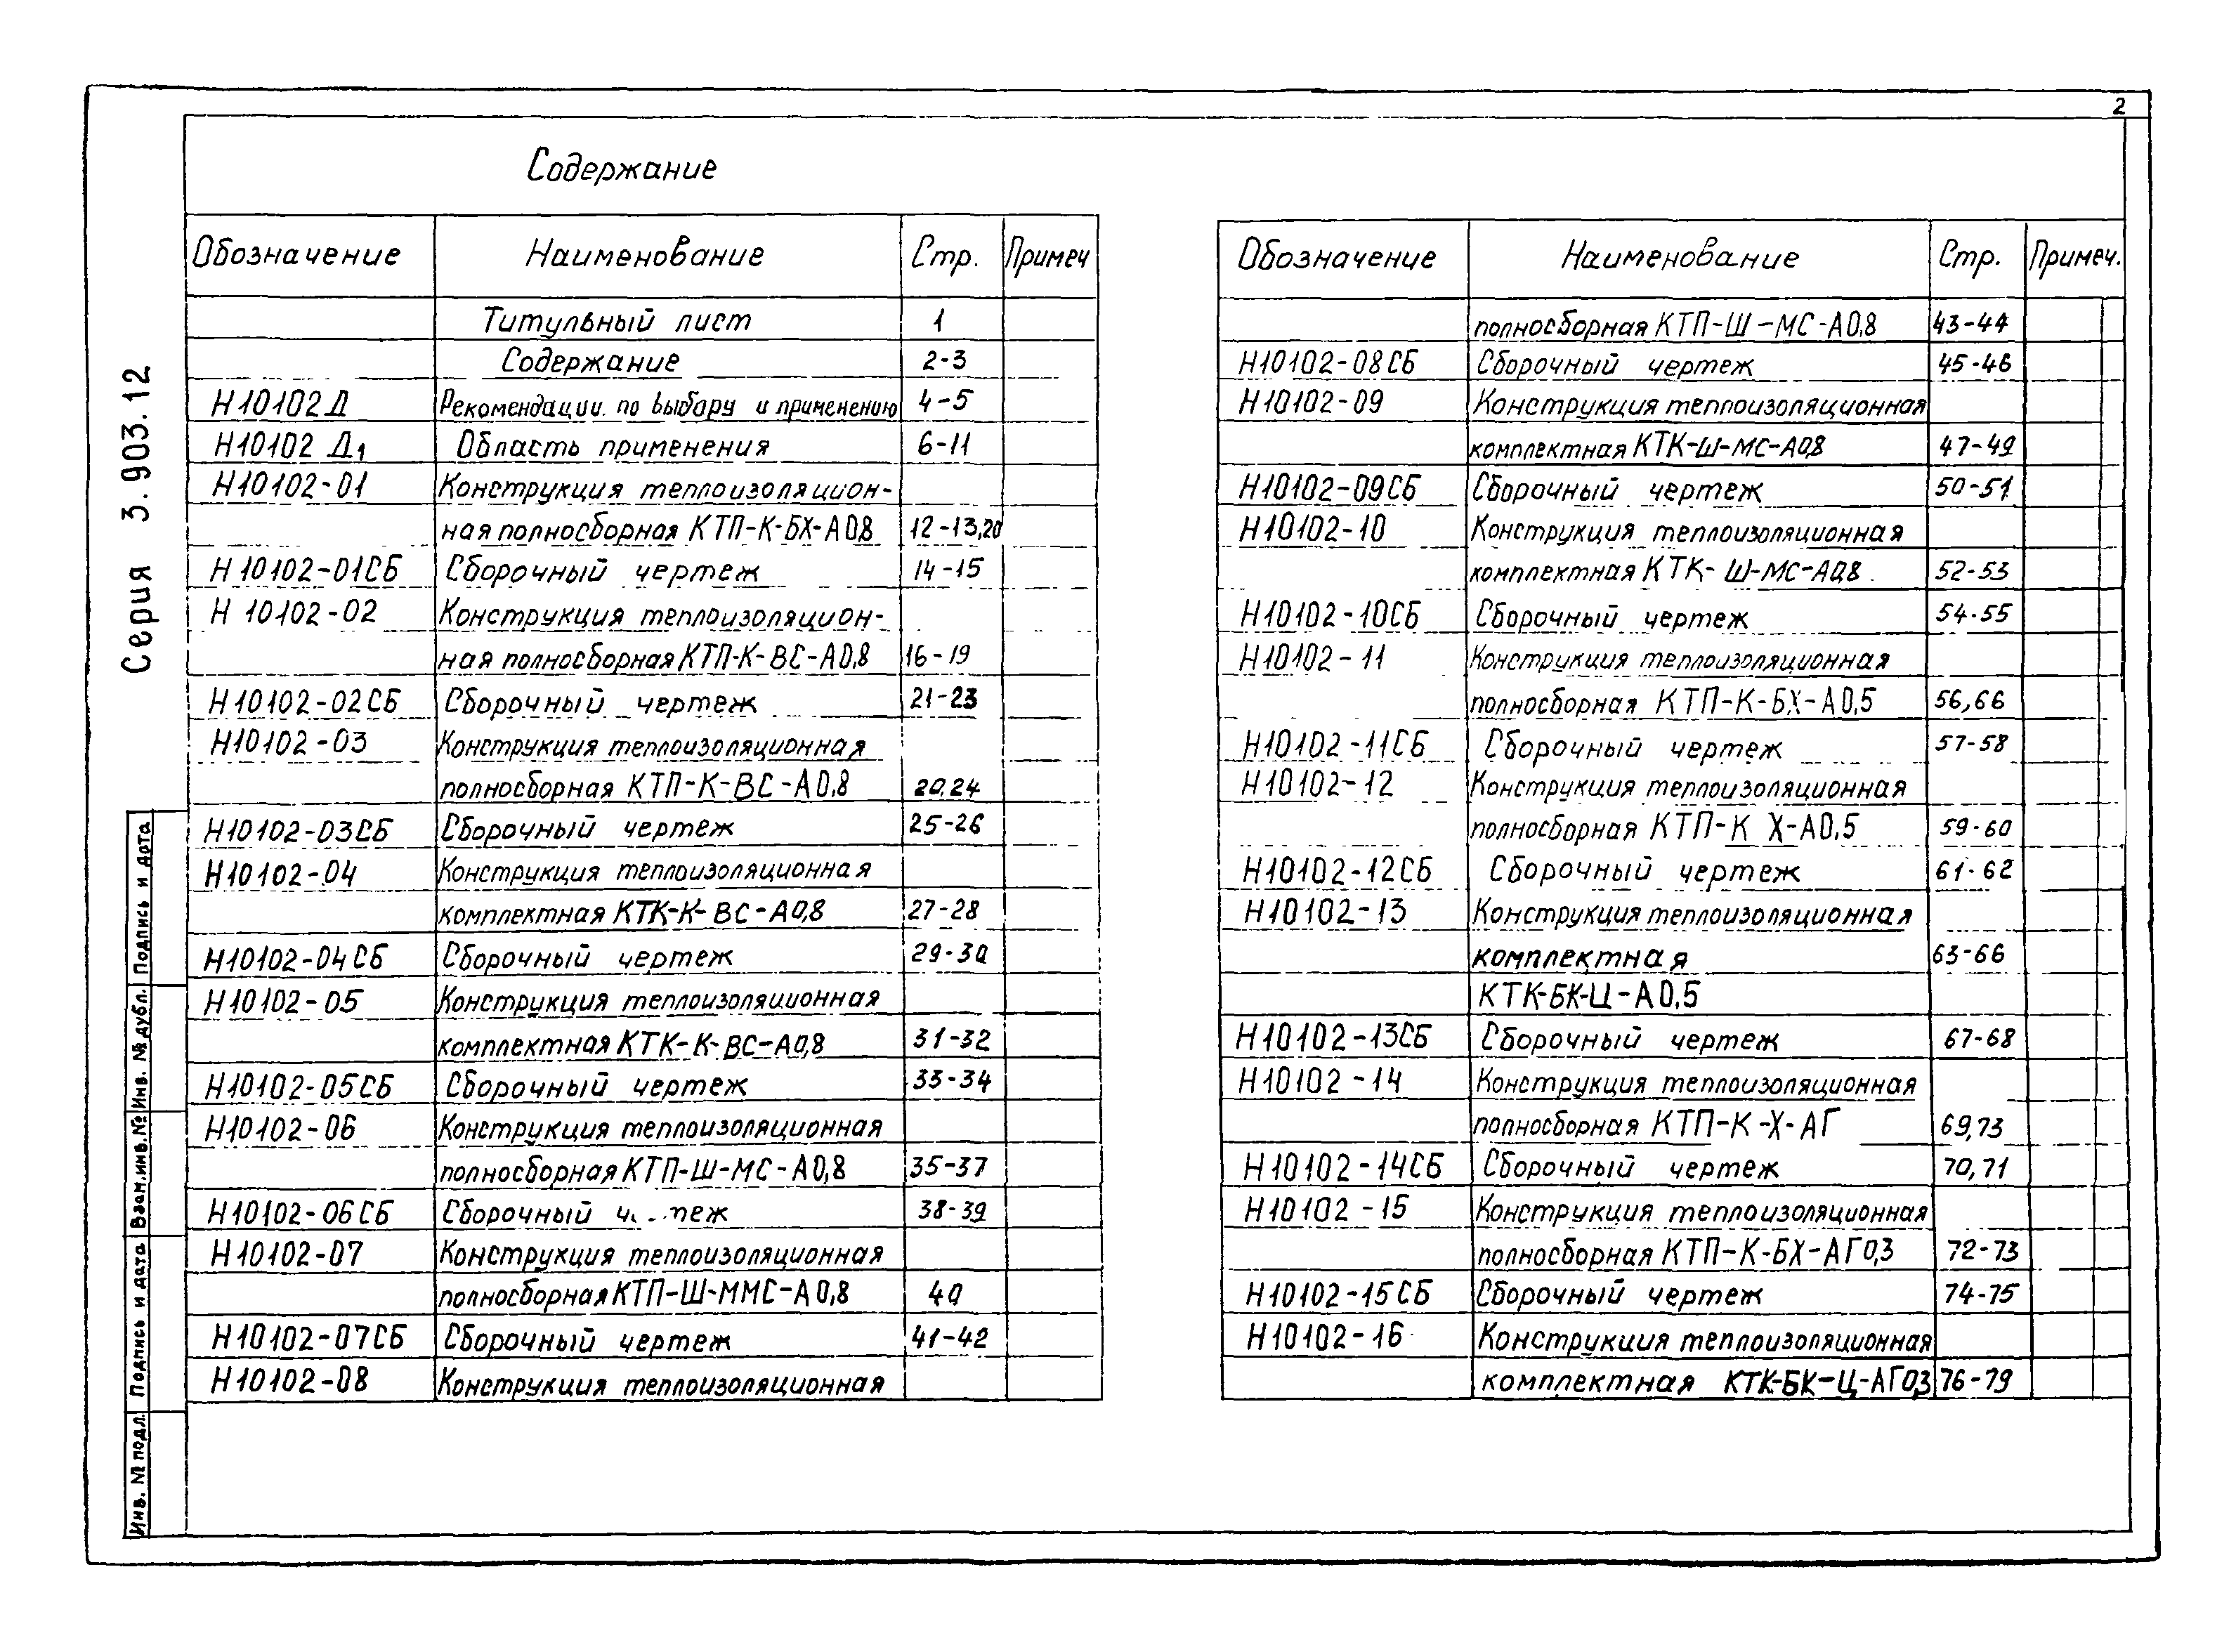 2
Серия 3.903.12
Содержание
Обозначение Наименование Стр. Примеч
Титульный лист 1
Содержание 2-3
Н10102Д Рекомендации по выбору и применению 4-5
Н10102 Д1 Область применения 6-11
Н10102-01 Конструкция теплоизоляцион-
ная полносборная КТП-К-БХ-А0,8 12-13,20
Н10102-01СБ Сборочный чертеж 14-15
Н10102-02 Конструкция теплоизоляцион-
ная полносборная КТП-К-ВС-А0,8 16-19
Н10102-02СБ Сборочный чертеж 21-23
Н10102-03 Конструкция теплоизоляционная
полносборная КТП-К-ВС-А0,8 20,24
Н10102-03СБ Сборочный чертеж 25-26
Н10102-04 Конструкция теплоизоляционная
комплектная КТК-К-ВС-А0,8 27-28
Н10102-04СБ Сборочный чертеж 29-30
Н10102-05 Конструкция теплоизоляционная
комплектная КТК-К-ВС-А0,8 31-32
Н10102-05СБ Сборочный чертеж 33-34
Н10102-06 Конструкция теплоизоляционная
полносборная КТП-Ш-МС-А0,8 35-37
Н10102-06СБ Сборочный 38-39
Н10102-07 Конструкция теплоизоляционная
полносборная КТП-Ш-ММС-А0,8 40
Н10102-07СБ Сборочный чертеж 41-42
Н10102-08 Конструкция теплоизоляционная
Обозначение Наименование Стр. Примеч.
полносборная КТП-Ш-МС-А0,8 43-44
Н10102-08СБ Сборочный чертеж 45-46
Н10102-09 Конструкция теплоизоляционная
комплектная КТК-Ш-МС-А0,8 47-49
Н10102-09СБ Сборочный чертеж 50-51
Н10102-10 Конструкция теплоизоляционная
комплектная КТК-Ш-МС-А0,8 52-53
Н10102-10СБ Сборочный чертеж 54-55
Н10102-11 Конструкция теплоизоляционная
полносборная КТП-К-БХ-А0,5 56,66
Н10102-11СБ Сборочный чертеж 57-58
Н10102-12 Конструкция теплоизоляционная
полносборная КТП-К Х-А0,5 59-60
Н10102-12СБ Сборочный чертеж 61-62
Н10102-13 Конструкция теплоизоляционная
комплектная 63-66
КТК-БК-Ц-А0,5
Н10102-13СБ Сборочный чертеж 67-68
Н10102-14 Конструкция теплоизоляционная
полносборная КТП-К-Х-АГ 69,73
Н10102-14СБ Сборочный чертеж 70,71
Н10102-15 Конструкция теплоизоляционная
полносборная КТП-К-БХ-АГ0,3 72-73
Н10102-15СБ Сборочный чертеж 74-75
Н10102-16 Конструкция теплоизоляционная
комплектная КТК-БК-Ц-АГ0,3 76-79
Инв. № подл. Подпись и дата Взам.инв.№ Инв. № дубл. Подпись и дата